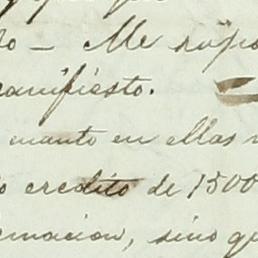 — Me supo
manifiesto.
cuanto en ellas
credito de 1500
macion, sino qu